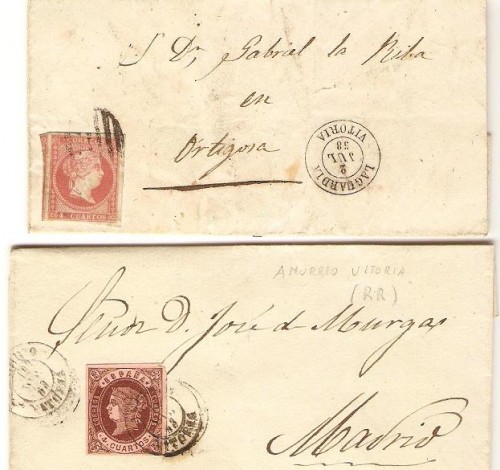 S. Dn. Gabriel la Riba
en
Ortigosa
CORREOS
4 CUARTOS
LAGUARDIA
2
JUL
58
VITORIA
AMURRIO VITORIA
(R.R)
Señor D. José de Murga
Madrid
ESPAÑA
CORREOS
4 CUARTOS